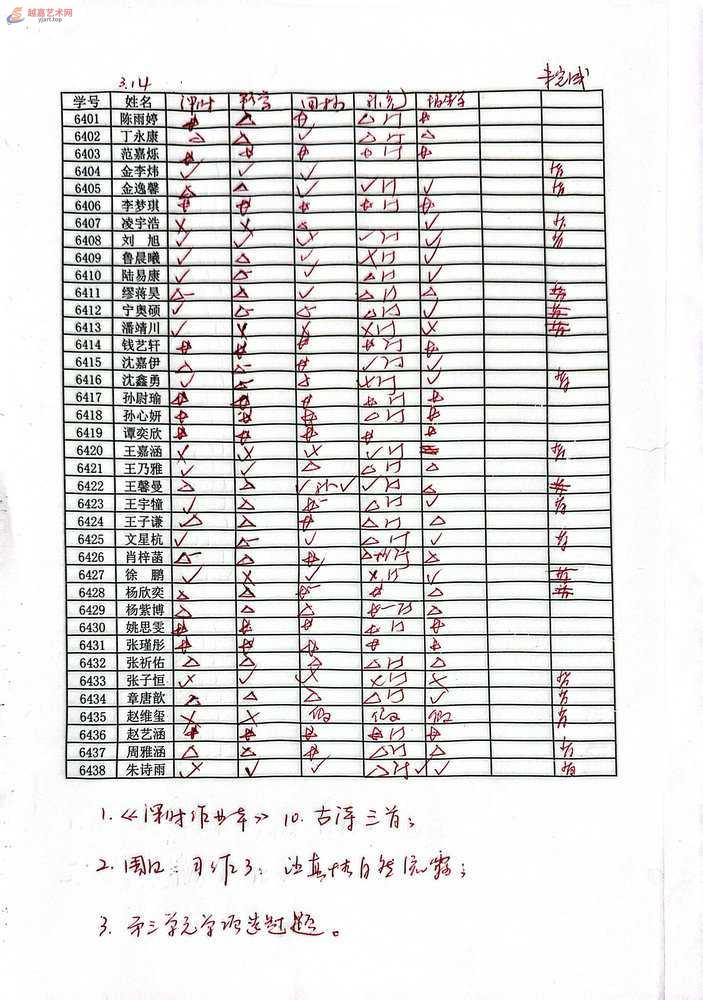 越嘉艺术网
yjart.top
3.14 未完成
学号 姓名 课时
6401 陈雨婷
6402 丁永康
6403 范嘉烁
6404 金李炜
6405 金逸馨
6406 李梦琪
6407 凌宇浩
6408 刘旭
6409 鲁晨曦
6410 陆易康
6411 缪蒋昊
6412 宁奥硕
6413 潘靖川
6414 钱艺轩
6415 沈嘉伊
6416 沈鑫勇
6417 孙尉瑜
6418 孙心妍
6419 谭奕欣
6420 王嘉涵
6421 王乃雅
6422 王馨曼
6423 王宇犝
6424 王子谦
6425 文星杭
6426 肖梓菡
6427 徐鹏
6428 杨欣奕
6429 杨紫博
6430 姚思雯
6431 张瑾彤
6432 张祈佑
6433 张子恒
6434 章唐歆
6435 赵维玺 假 假 假
6436 赵艺涵
6437 周雅涵
6438 朱诗雨
1.《课时作业本》10.古诗三首；
2.周口：习作3：让真情自然流露；
3.第三单元单项选择题。